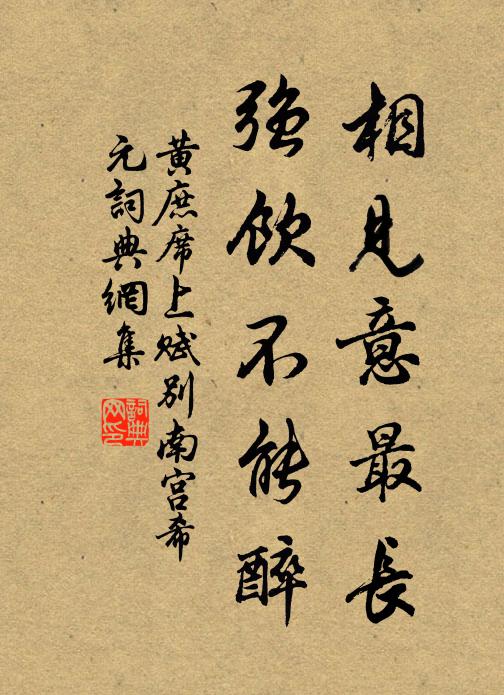 相見意最長
強飲不能醉
黃庶席上賦別南宮希
元詞典網集
詞典
网印